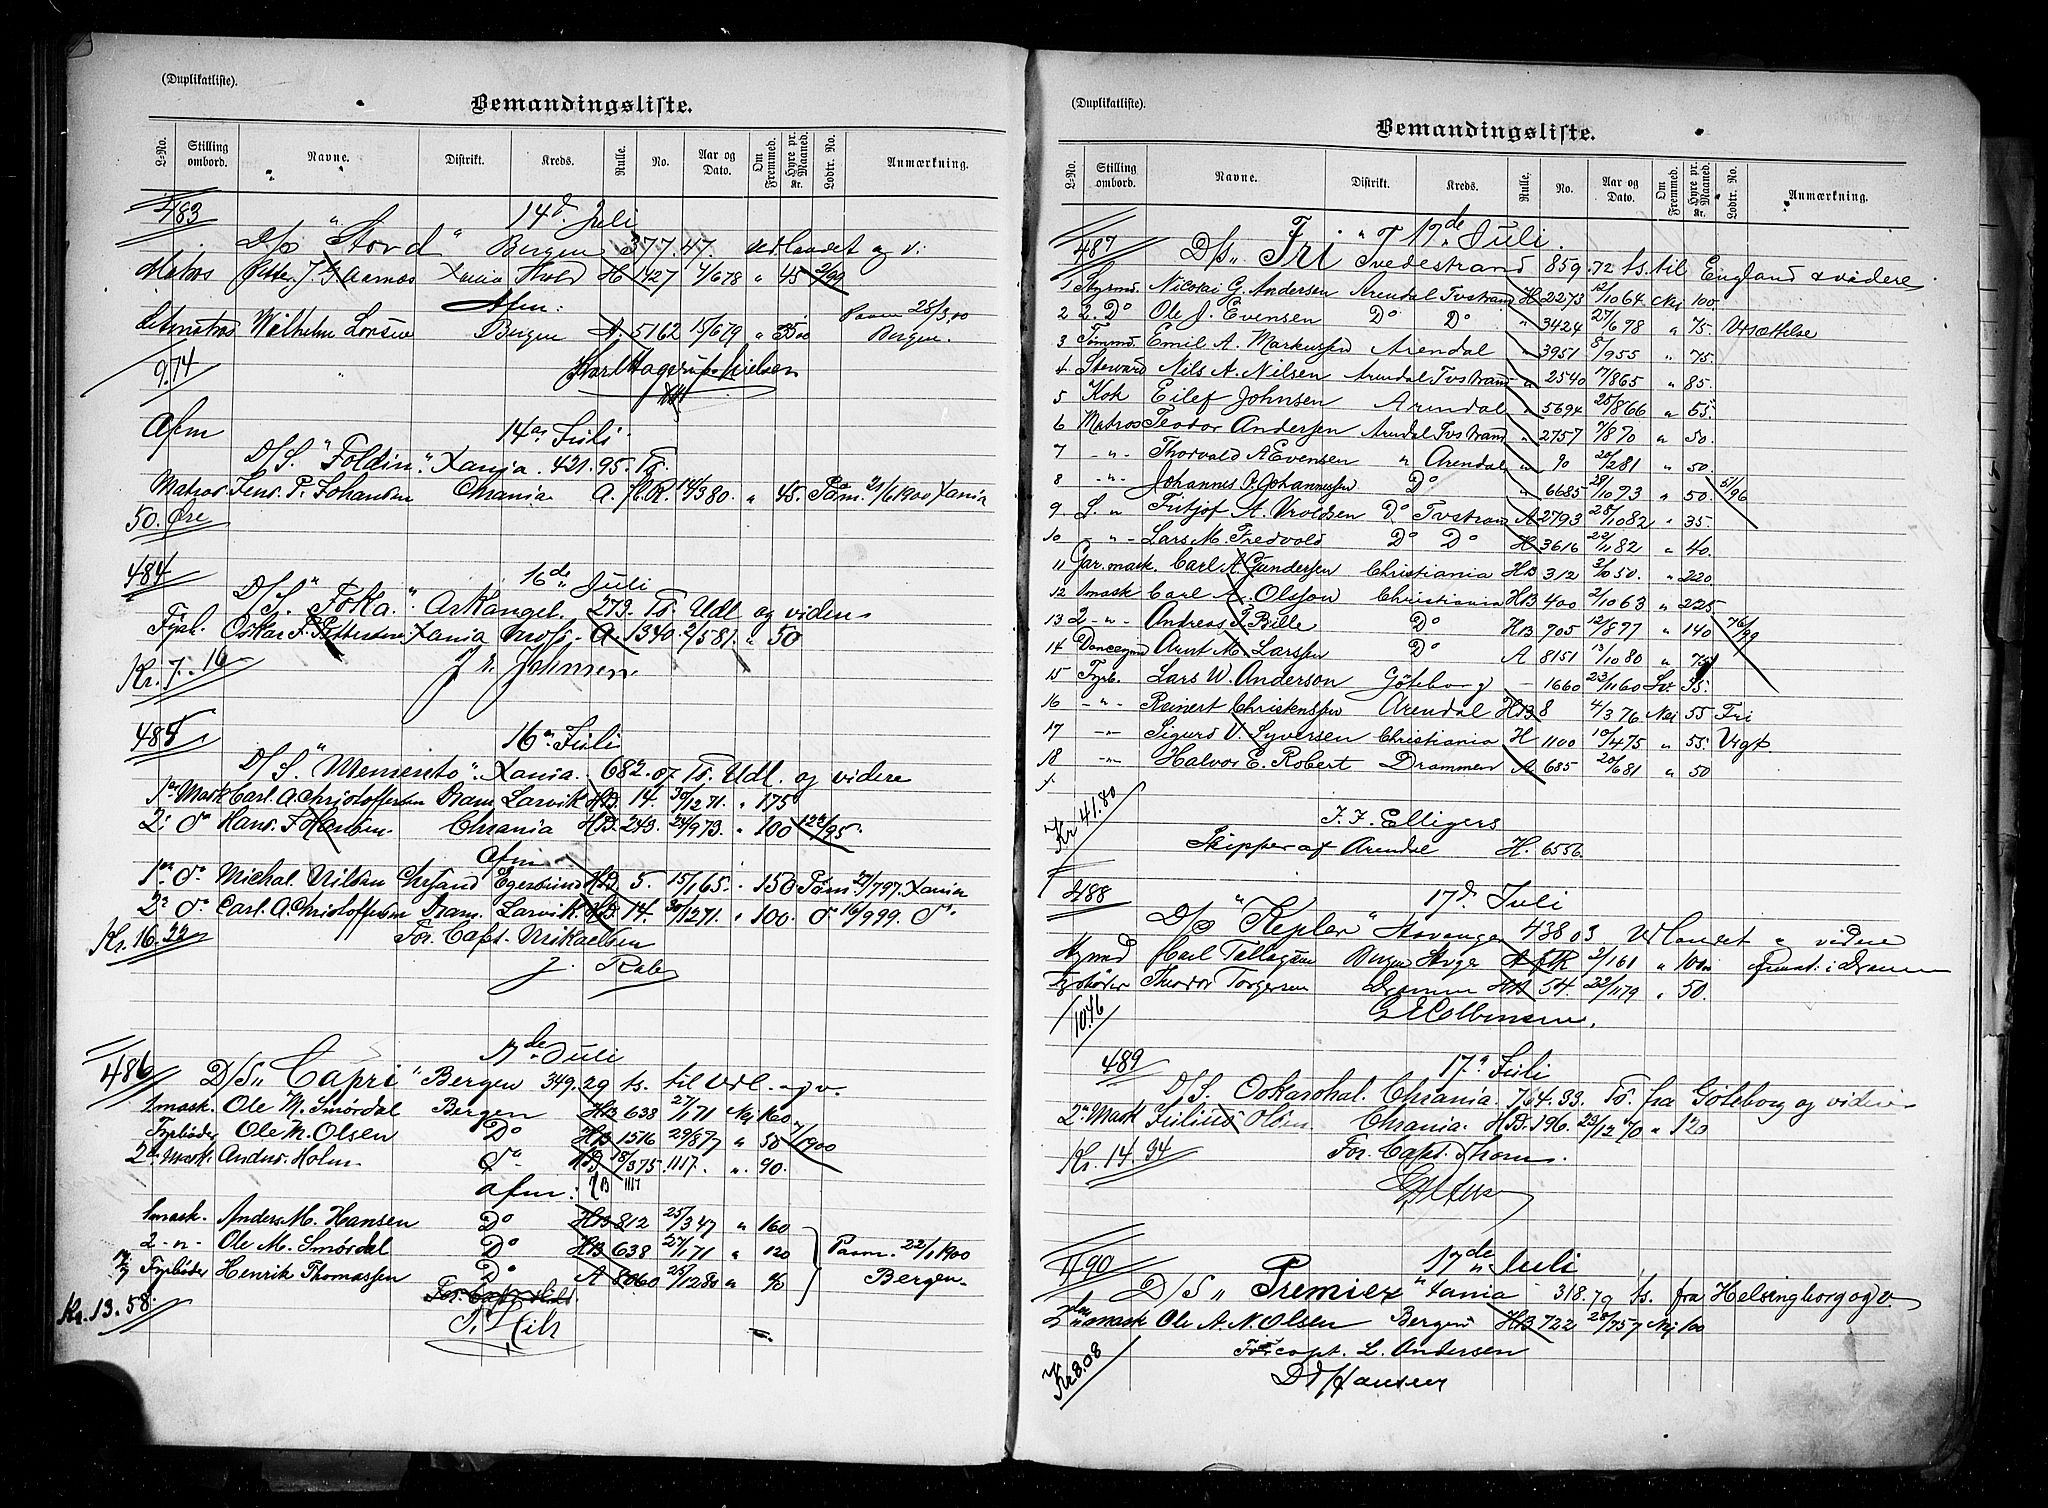 (Duplikatliste).
Bemandingsliste.
L-No. Stilling ombord. Navne. Distrikt. Kreds. Rulle. No. Aar og Dato. Om Fremmed. Hyre pr. Maaned. Kr. Lodtr. No. Anmærkning.
483 14d. Juli
D/s "Stord" Bergen 377.47.
Matros Xania H 1427 " 45 2/99
Afm:
Letmatros Wilhelm Bergen A 5162 15/679 " 35 00 Paam 28/3.00 Bergen.
9.74
Afm 14de Juli
D/S. "Foldin". Xania. 421.95. Ts.
Matros. Jens. P. Johansen Chrania. A. fl.R. 14/380. " 45. Paam. 1900 Xania
50. Øre
484 16de Juli
D/S. "Foka." Arkangel. 273. Ts. Udl og videre
Fyrb. Oskar Xania A. 1340 2/581. " 50
Kr. 7. 16
J. Johnsen.
485 16de Juli
D/S. "Memento". Xania. 682.07 Ts. Udl. og videre
1ste Mask Carl. A. Christoffersen Dram. Larvik HB. 14. 30/1271. " 175
2. do Hans. J. Hansen. Chrania HB. 243. 24/973. " 100 122/95.
Afm
1ste do. Michal. Nilsen Chrsand Egersund HB. 5. 15/165. " 150 Paam. 21/797. Xania
2. do Carl. A. Christoffersen Dram. Larvik. HB. 14. 30/1271. " 100. do 16/999. do.
Kr. 16. 22 For. Capt. Mikaelsen
J. Raby
486 17de Juli
D/S "Capri" Bergen 349.29 ts. til Udl. og v.
1mask. Ole M. Smördal Bergen HB 638 27/171 Nej 160
Fyrbøder Ole M. Olsen Do HB 1516 29/877 " 50 7/1900
2. Mask. Anders. Holm. do HB 18/375 1117. " 90.
Afm: HB 1117
1mask. Anders M. Hansen Do HB 812 25/347 " 160
2 - " - Ole M. Smördal Do HB 638 27/171 " 120 Paam. 22/1 1900
Fyrbøder Henrik Thomassen Do A 8060 25/1280 " 40 Bergen.
Kr. 13.58.
(Duplikatliste).
Bemandingsliste.
L-No. Stilling ombord. Navne. Distrikt. Kreds. Rulle. No. Aar og Dato. Om Fremmed. Hyre pr. Maaned. Kr. Lodtr. No. Anmærkning.
487 17de Juli.
D/s "Fri" Tvedestrand 859.72 ts. til England & videre
1 Styrmd. Nicolai G. Andersen Arendal Tvstrand H 2273 12/1064 Nej 100.
2 2. Do Ole J. Evensen Do Do " 3424 27/678 " 75. Udsættelse
3 Tømmd. Emil A. Markussen Arendal " 3951 5/955 " 75.
4 Steward Nils A. Nilsen Arendal Tvstrand " 2540 7/865 " 85.
5 Kok Eilef Johnsen Arendal " 5694 25/866 " 65.
6 Matros Teodor Andersen Arendal Tvstrand " 2757 7/870 " 50.
7 - " - Thorvald A Evensen " Arendal " 90 20/281 " 50.
8 - " - Johannes O. Johannessen Do " 6685 29/1073 " 50. 51/96
9 L. " Fritjof A. Vroldsen Do Tvstrand A 2793 28/1082 " 35.
10 - " - Lars M. Tredvold Do Do H 3616 22/1182 " 40.
11 Gar. mask. Carl A. Gundersen Christiania HB 312 2/1050. " 220
12 1mask Carl A. Olsson Christiania HB 400 2/1063 " 225.
13 2 - " - Andreas J. Bille Do HB 705 12/877 " 140 76/99
14 Donkeymd Arnt M. Larssen Do A 8151 13/1080 " 75
15 Fyrb. Lars W. Anderson Göteborg - 1660 23/1160 Sv. 55.
16 - " - Reinert Christenssen Arendal HB 8 4/376 Nei 55 Fri
17 - " - Sigurd V. Syversen Christiania H 1100 10/475 " 55. Vigt
18 - " - Halvor E. Robert Drammen A 685 20/681 " 50
Kr 41.80
J. F. Elligers
Skipper af Arendal H. 6556
488 17d. Juli
D/s "Kepler" Stavanger 438 03 Udlandet & videre
Styrmd Carl Tallagsen Bergen A flR 2/161 " 100 00
Fyrbøder Theodor Torgersen Drammen HB 54. 22/1179 " 50.
10.46
489 17d. Juli
D/S. Oskarshal. Chrania. 764.33. Ts. fra Göteborg og videre
2. Mask Julius Holm Chrania. HB. 196. 23/1270 " 120
Kr. 14. 94 For. Capt. Thom.
490 17de Juli
D/S "Premier" Xania - 318.79 ts. fra Helsingborg og v.
2den mask Ole A. N. Olsen Bergen HB 722 28/757 Nej 100
For capt. L. Andersen
Kr 8.08 Hansen